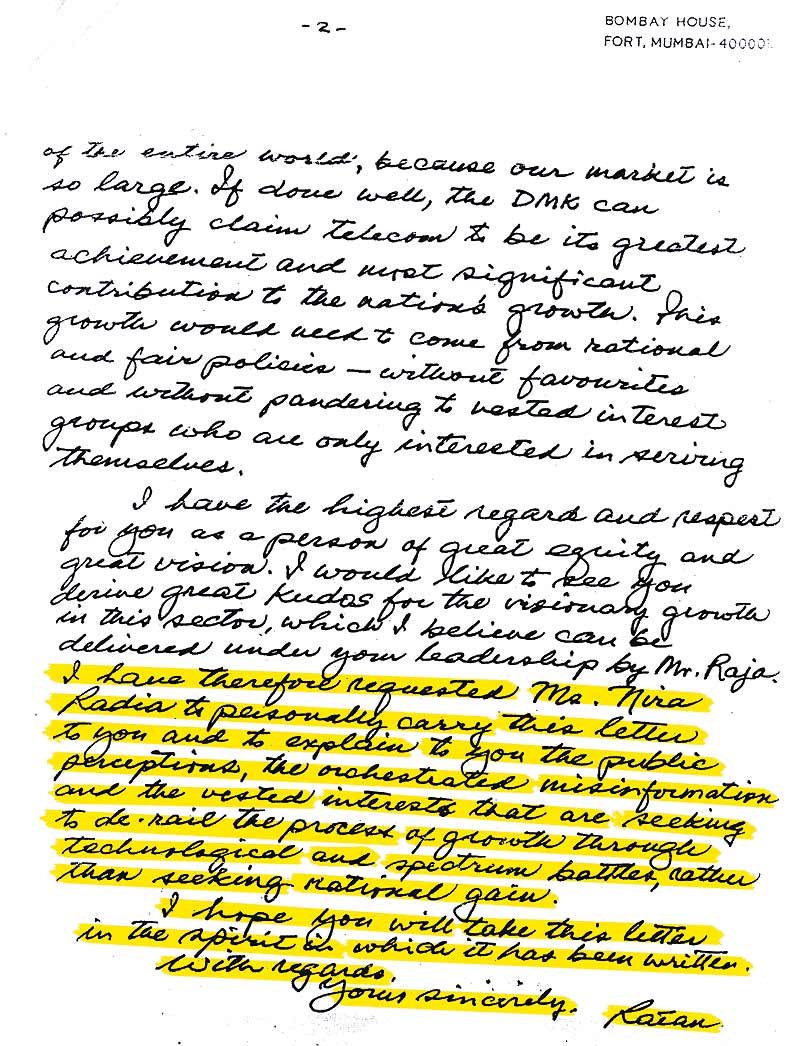 - 2 -
BOMBAY HOUSE,
FORT, MUMBAI-400001
of the entire world, because our market is
so large. If done well, the DMK can
possibly claim telecom to be its greatest
achievement and most significant
contribution to the nation's growth. This
growth would need to come from rational
and fair policies — without favourites
and without pandering to vested interest
groups who are only interested in serving
themselves.
I have the highest regard and respect
for you as a person of great equity and
great vision. I would like to see you
derive great kudos for the visionary growth
in this sector, which I believe can be
delivered under your leadership by Mr. Raja.
I have therefore requested Ms. Nira
Radia to personally carry this letter
to you and to explain to you the public
perceptions, the orchestrated misinformation
and the vested interests that are seeking
to de-rail the process of growth through
technological and spectrum battles, rather
than seeking rational gain.
I hope you will take this letter
in the spirit in which it has been written.
With regards.
Yours sincerely.
Ratan